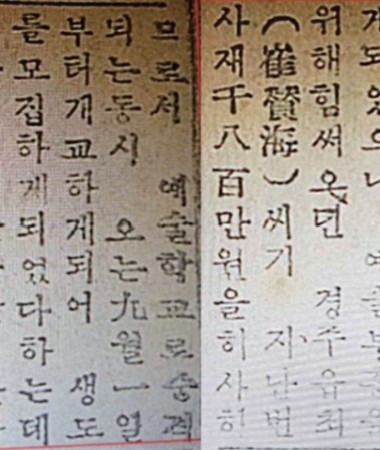 게되었으니
위해힘써오던 경주유최
(崔賛海)씨기 지난번
사재千八百만원을히사히
므로서 예술학교로승격
되는동시 오는九월一일
부터개교하게되어 생도
를모집하게되었다하는데